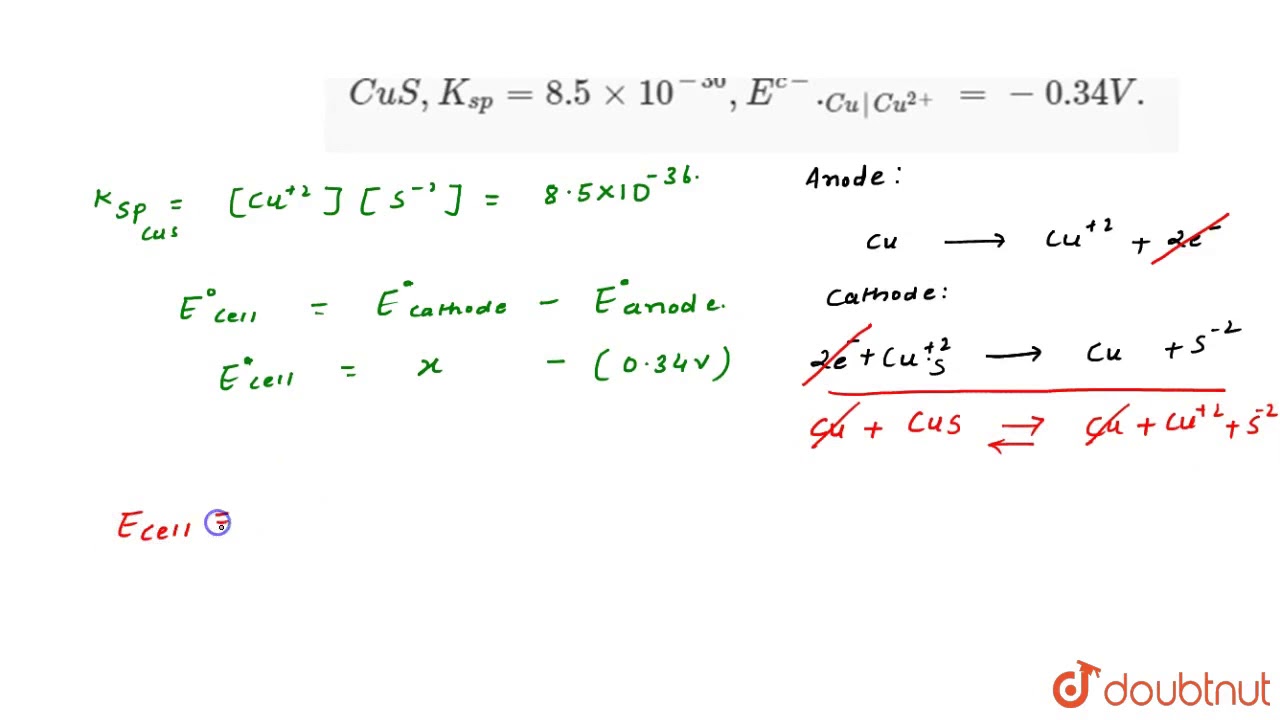 CuS, K_sp = 8.5 × 10^-36, E^c- ._Cu|Cu^2+ = - 0.34V.
K_sp CuS = [Cu^+2] [S^-2] = 8.5×10^-36.
E°cell = E°cathode - E°anode.
E°cell = x - (0.34V)
Ecell =
Anode:
Cu → Cu^+2 + 2e^-
Cathode:
2e^- + Cu^+2 S → Cu + S^-2
Cu + CuS ⇌ Cu + Cu^+2 + S^-2
doubtnut